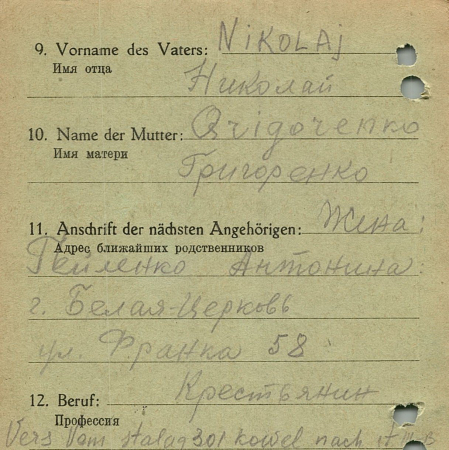 9. Vorname des Vaters: NiKOLAj
Имя отца
Николай
10. Name der Mutter: Qrigorenko
Имя матери
Григоренко
11. Anschrift der nächsten Angehörigen: Жена:
Адрес ближайших родственников
Гейленко Антонина
г. Белая-Церковь
ул. Франка 58
12. Beruf: Крестьянин
Профессия
Vers Vom stalag 301 Kowel nach